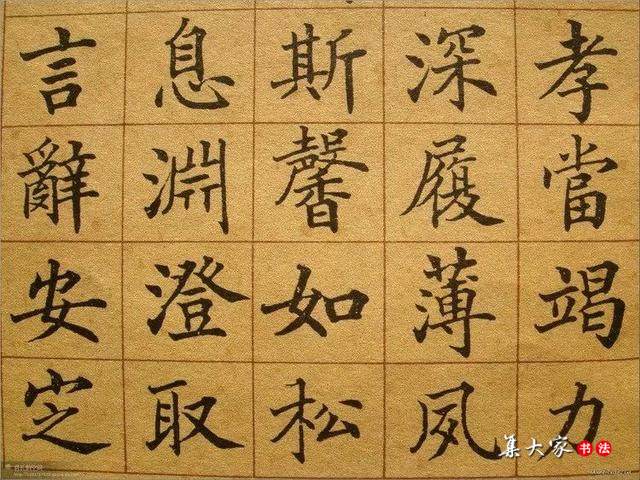 孝當竭力
深履薄夙
斯馨如松
息淵澄取
言辭安定
集大家书法